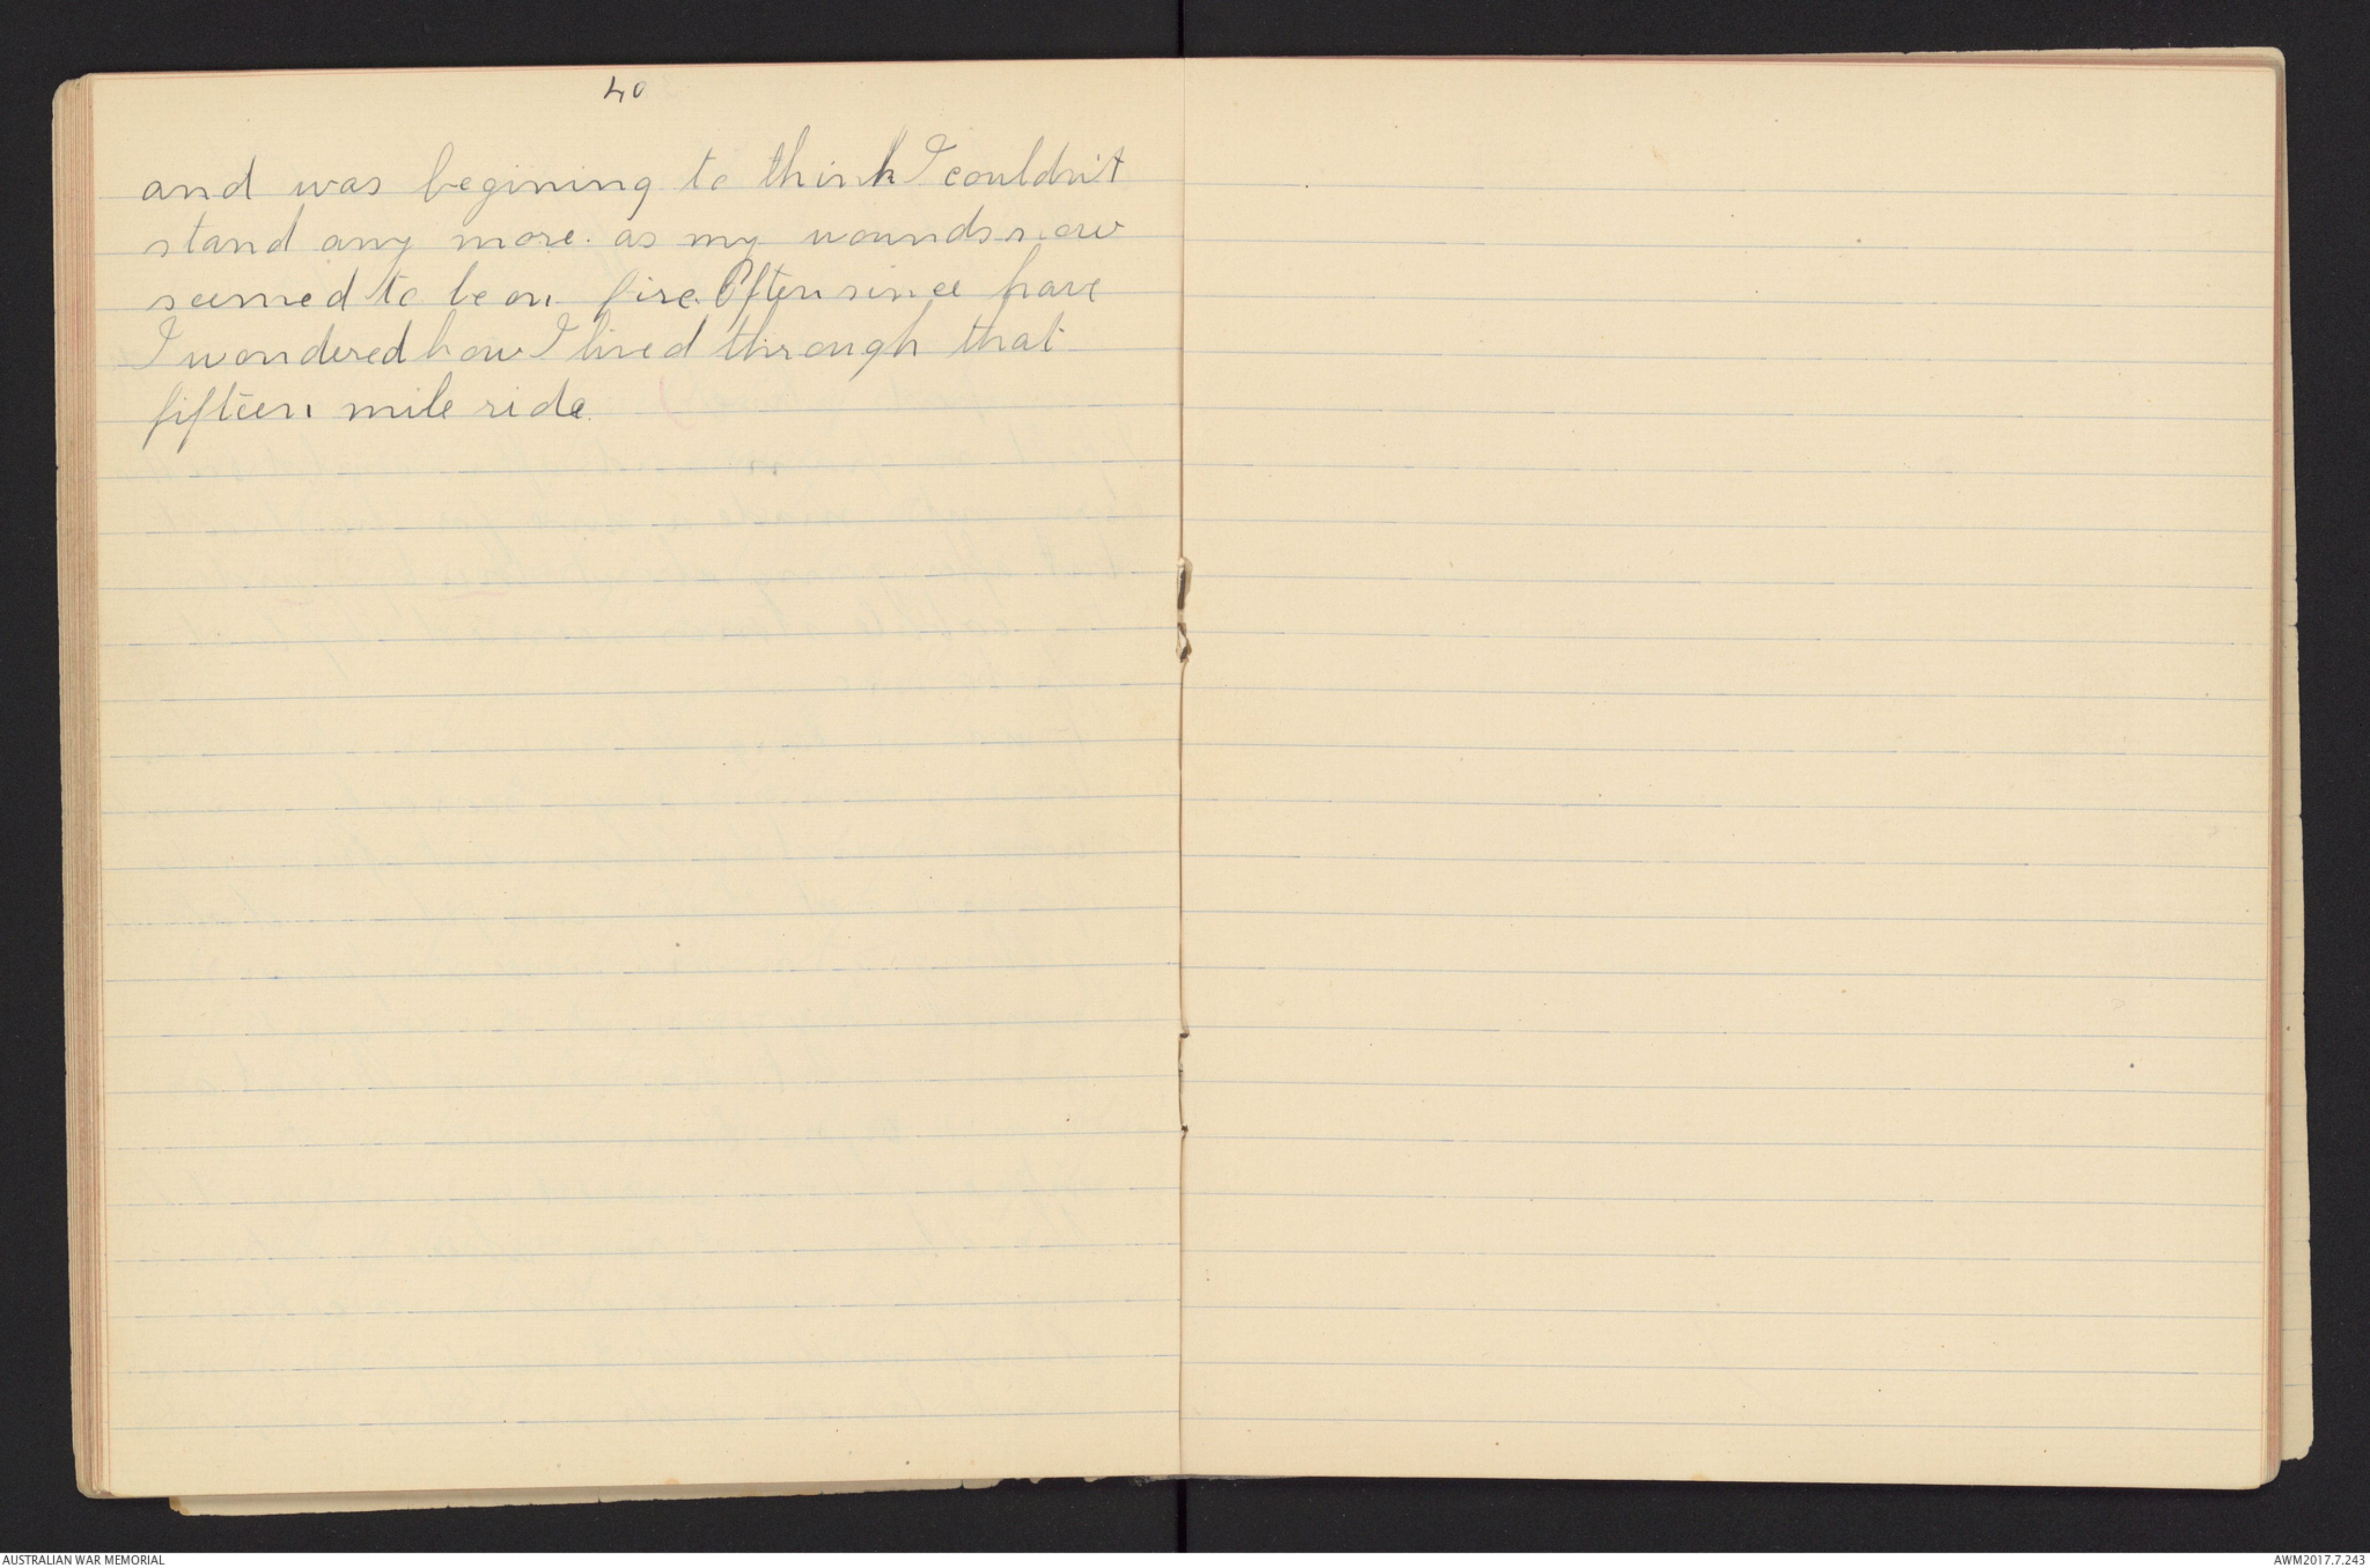 40
and was begining to think I couldn't
stand any more. as my wounds now
seemed to be on fire. Often since have
I wondered how I lived through that
fifteen mile ride.
AUSTRALIAN WAR MEMORIAL
AWM2017.7.243